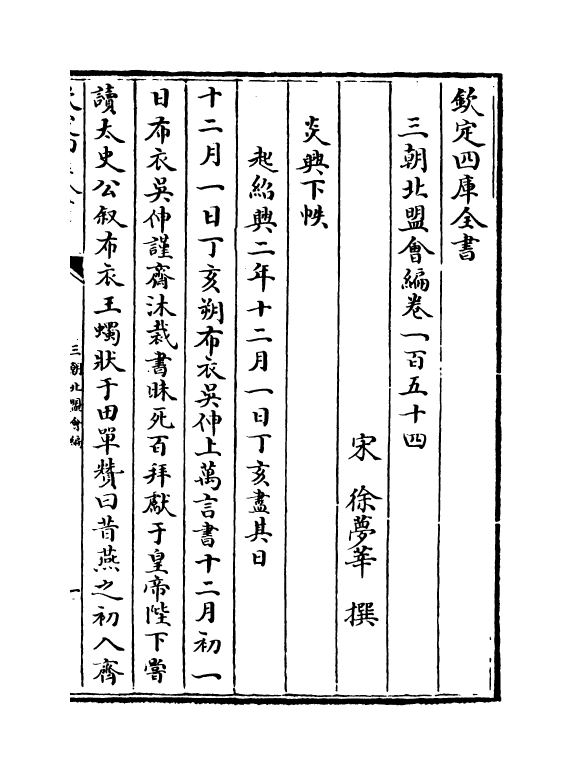 欽定四庫全書
三朝北盟會編卷一百五十四
宋 徐夢莘 撰
炎興下帙
起紹興二年十二月一日丁亥盡其日
十二月一日丁亥朔布衣吳伸上萬言書十二月初一
日布衣吳伸謹齋沐裁書昧死百拜獻于皇帝陛下嘗
讀太史公叙布衣王蠋狀于田單贊曰昔燕之初入齊
三朝北盟會編
一